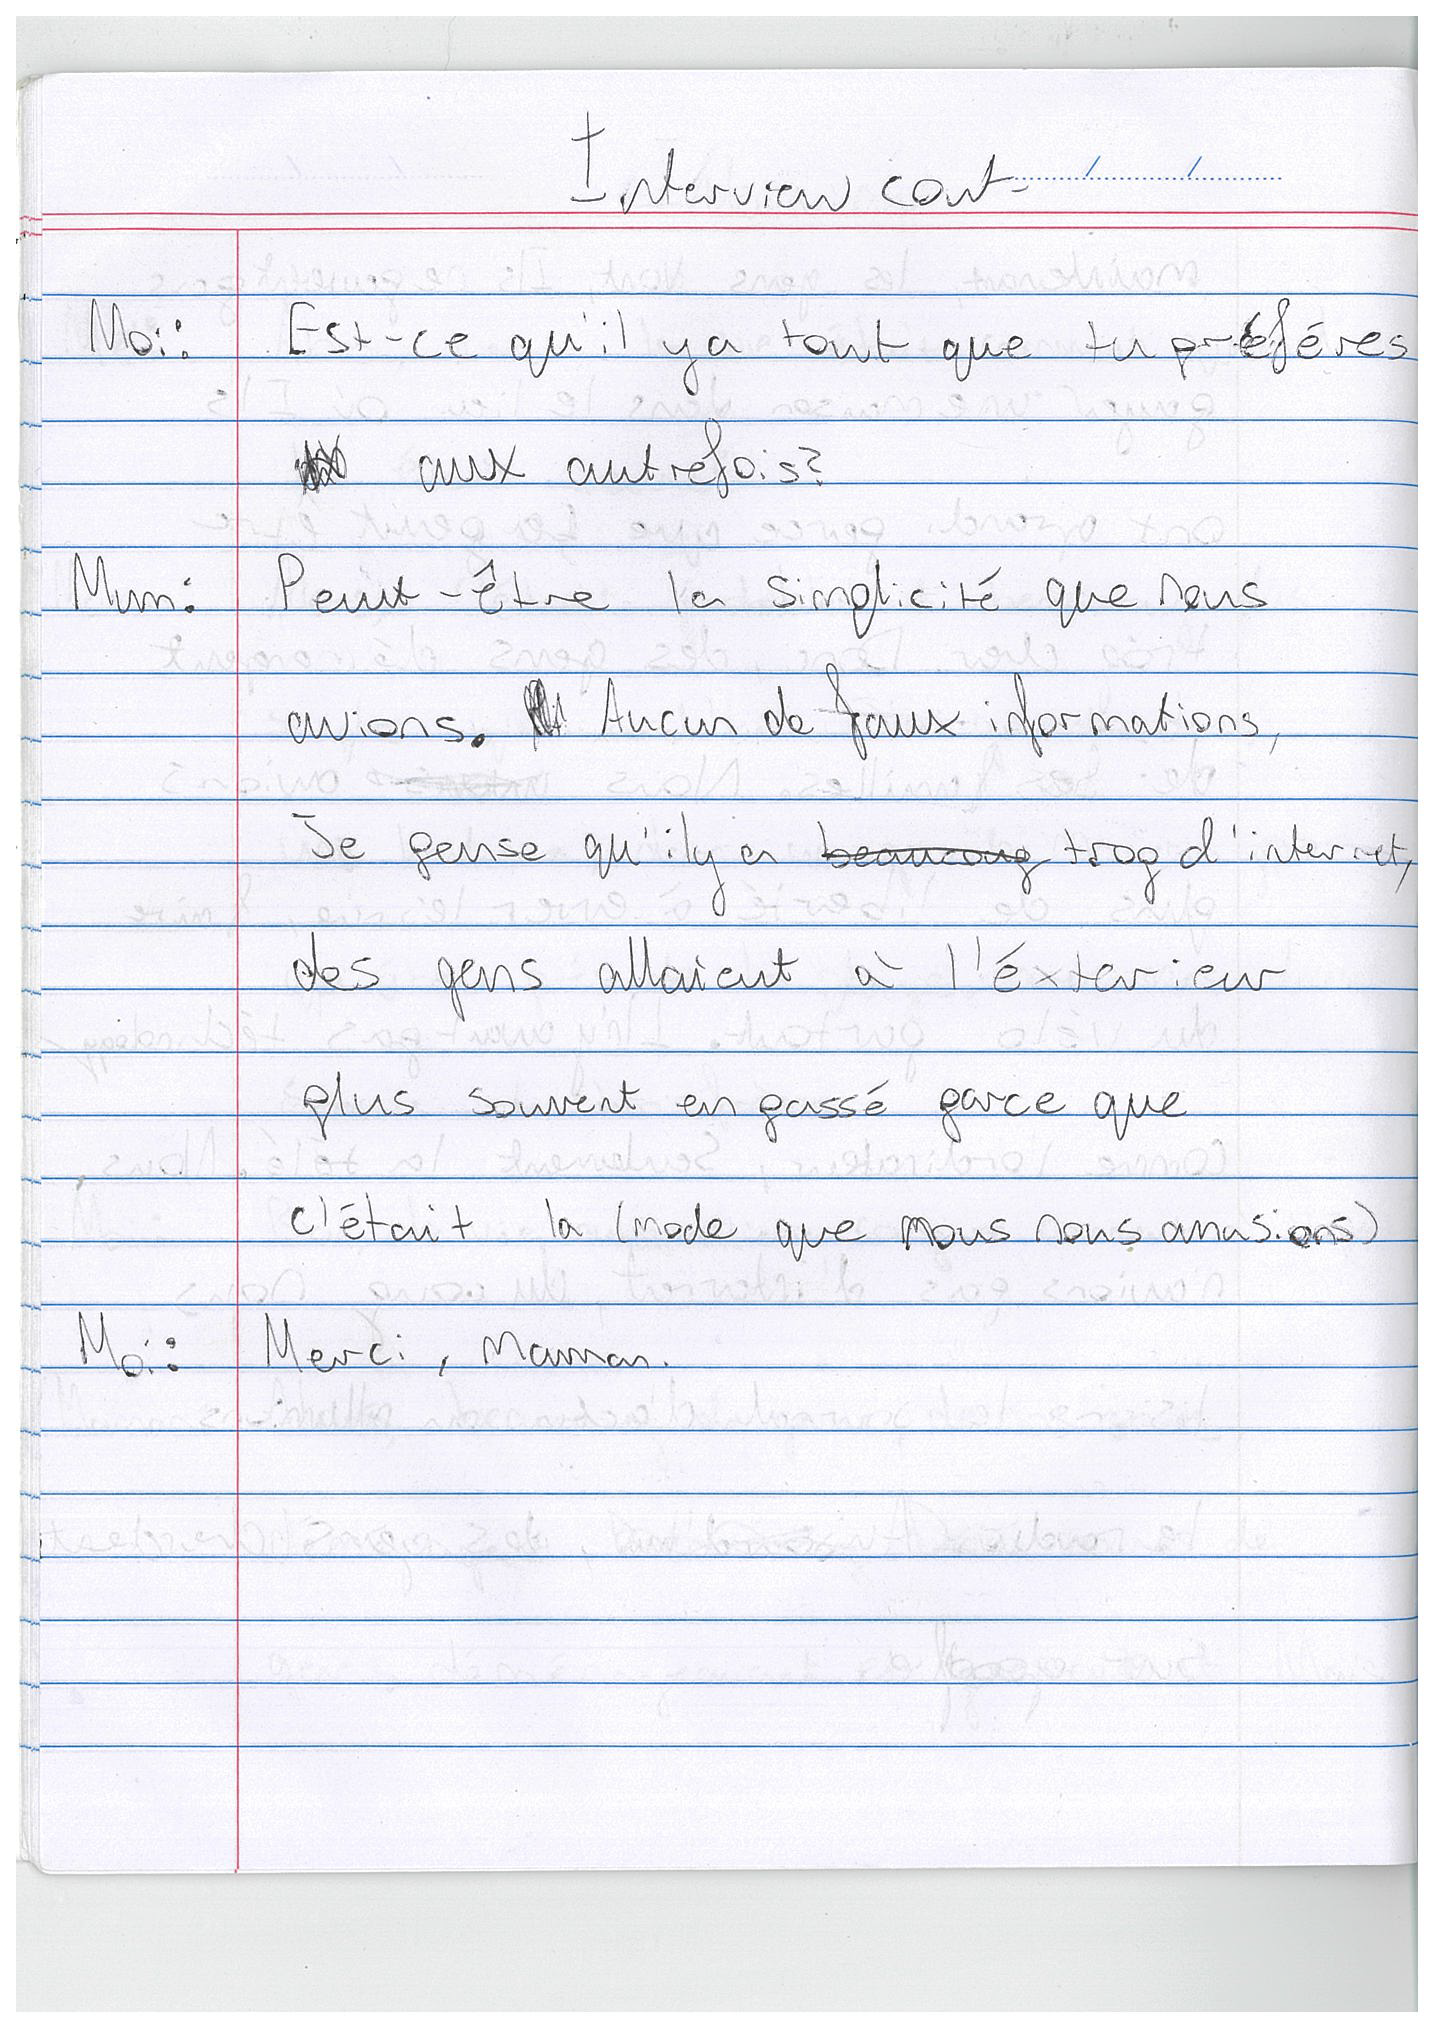 Interview cont-
Moi: Est-ce qu'il y a tout que tu préféres
aux autrefois?
Mum: Peut-être la simplicité que nous
avions. Aucun de faux informations,
Je pense qu'il y a beaucoup trop d'internet,
des gens allaient à l'éxterieur
plus souvent en passé parce que
c'était la (mode que nous nous amusions)
Moi: Merci, Maman.